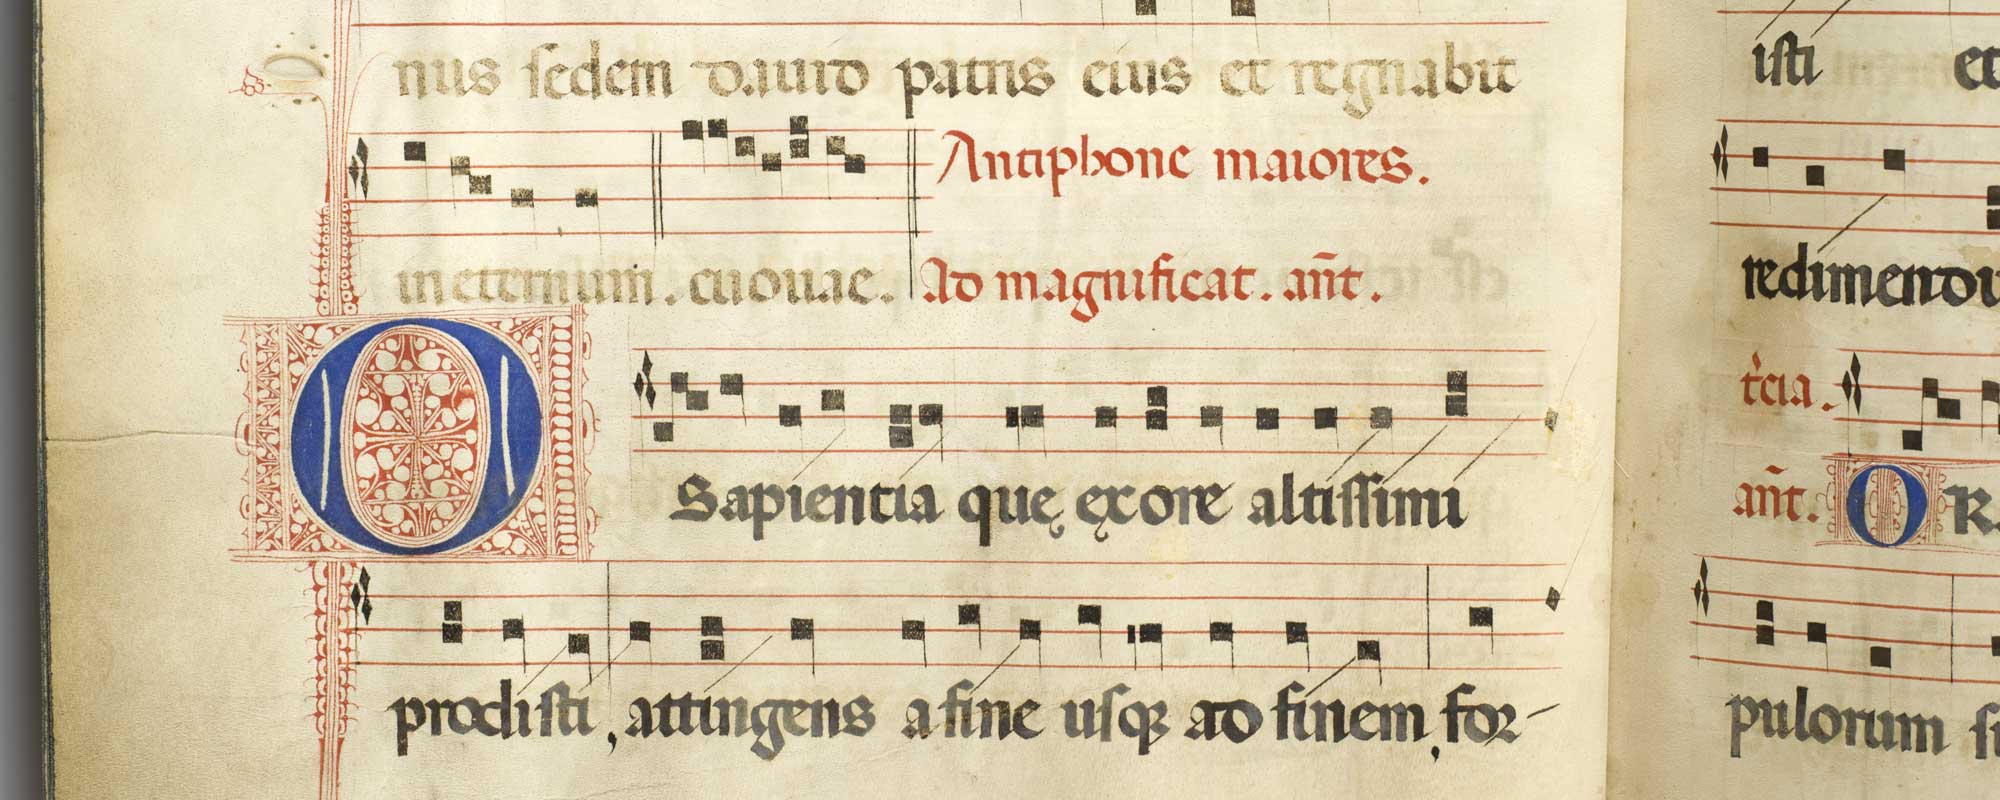 nus sedem dauid patris eius et regnabit
Antiphone maiores.
in eternum. euouae. Ad magnificat. añt.
O Sapientia que ex ore altissimi
prodisti, attingens a fine usqꝫ ad finem, for-
isti et
redimendu
t'cia.
añt. O R.
pulorum si